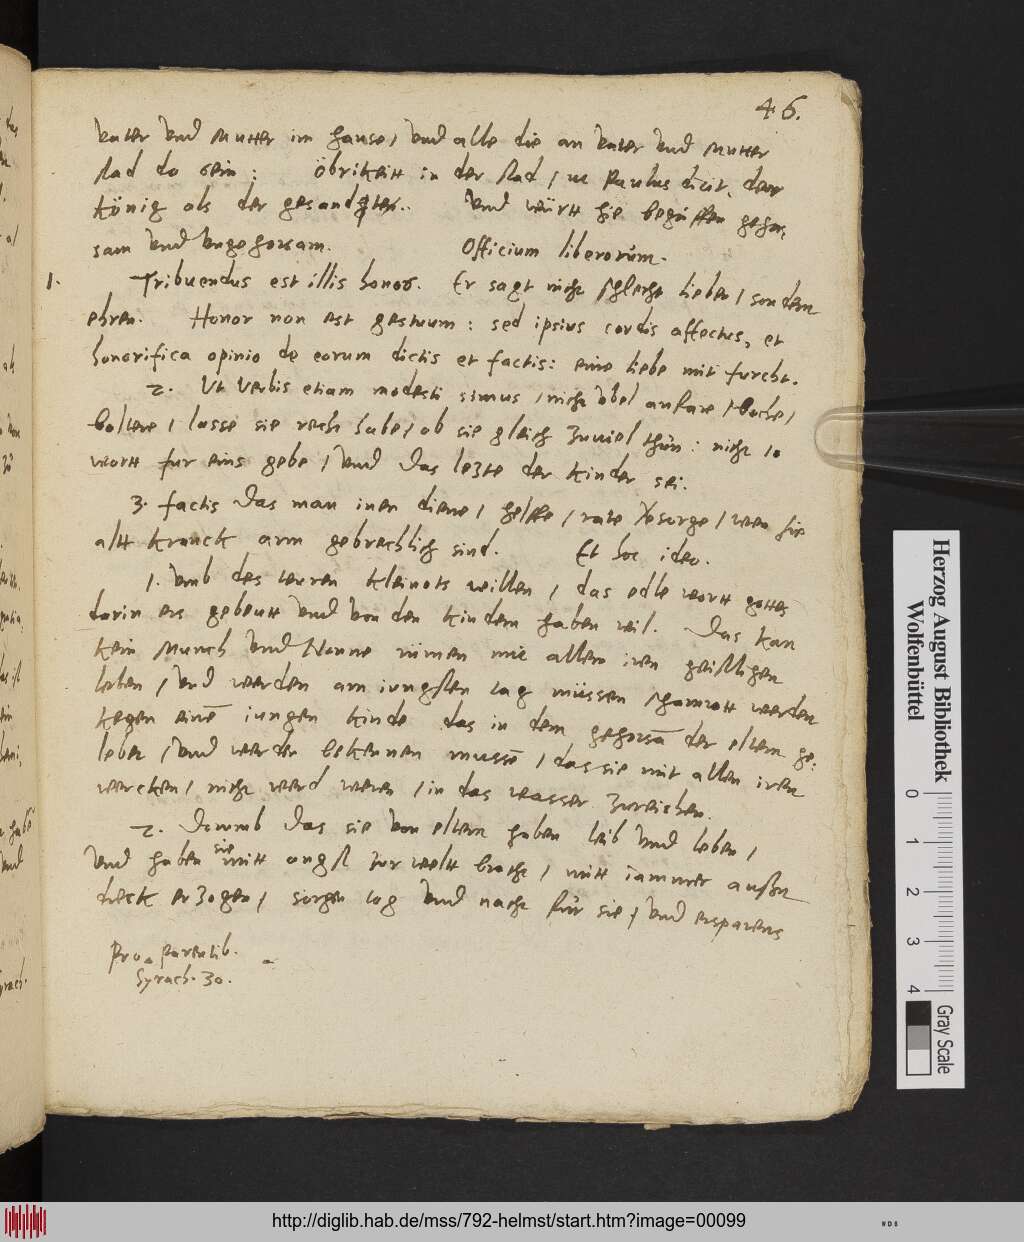 46.
Vater Vnd Mutter im hause / Vnd alle die an Vater Vnd Mutter
stad do sein : öbrikeitt in der stad / ut Paulus dicit, dem
könig als der gesandter. Vnd württ hie begriffen gehor,
sam Vnd Vngehorsam. Officium liberorum.
1. Tribuendus est illis honor. Er sagt nicht schlecht lieben / sondern
ehren. Honor non est gestuum : sed ipsius cordis affectus, et
honorifica opinio de eorum dictis et factis : eine liebe mit furcht.
2. Vt Verbis etiam modesti simus / nicht vbel anfare / boche /
boltere / lasse sie recht habe / ob sie gleich zuviel thün : nicht 10
wortt fur eins gebe / Vnd das lezte der kinder sei.
3. factis das man inen diene / helffe / rate Vesorge / wen sie
altt kranck arm gebrechlich sind. Et hoc ideo.
1. Vmb des teuren kleinots willen / das edle wortt gottes
darin ers gebeutt Vnd von den kindern haben wil. Das kan
kein Munch Vnd Nonne rümen mit allem iren geistligen
leben / Vnd werden am iungsten tag müssen schamrott werden
kegen einē iungen kinde das in dem gehorsā der eltern ge:
lebet / Vnd werden bekennen mussē / das sie mit allen iren
wercken / nicht werd weren / in das wasser zureichen.
2. Darumb das sie von eltern haben leib Vnd leben /
Vnd haben sie mitt angst zur weltt bracht / mitt iammer außm
dreck erzogen / sorgen tag Vnd nacht für sie / Vnd ersparens
Pro Parentib.
Syrach. 30.
Herzog August Bibliothek
Wolfenbüttel
0 1 2 3 4
Gray Scale
http://diglib.hab.de/mss/792-helmst/start.htm?image=00099